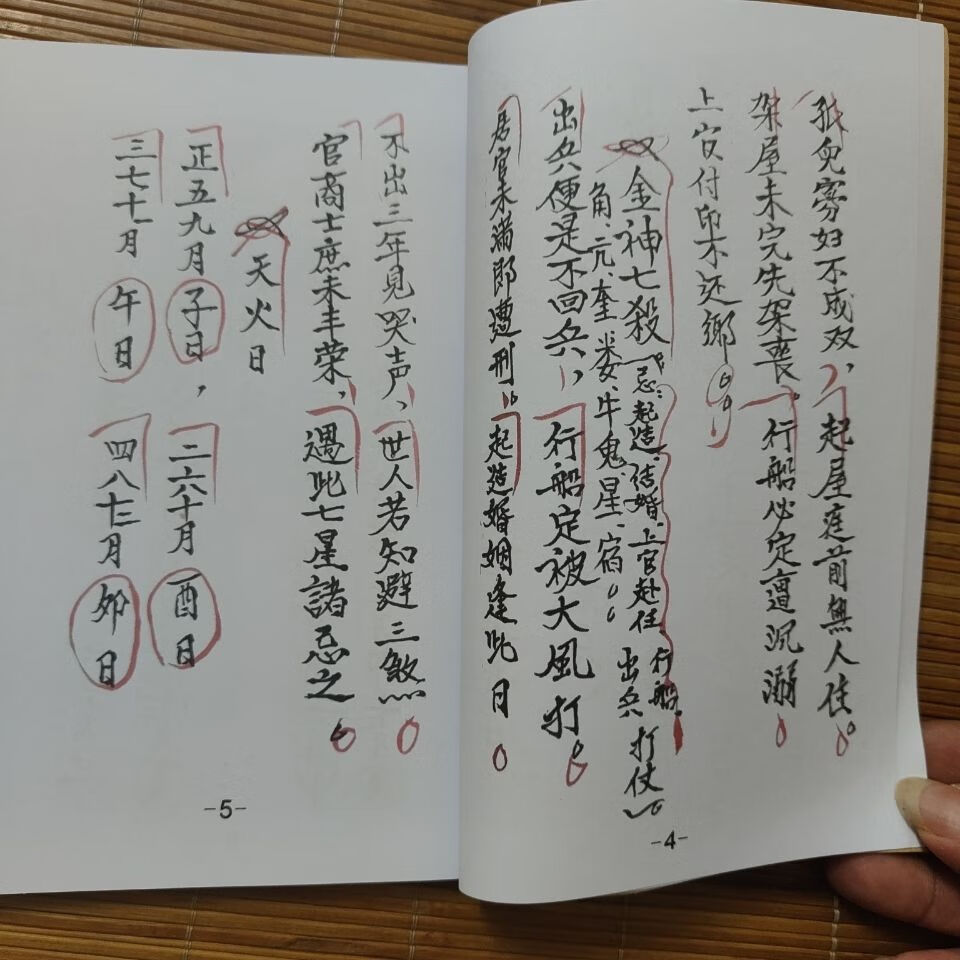 孤儿寡妇不成双，起屋庭前無人住
架屋未完先架喪。行船必定遭沉溺
上官付印不还鄉。
金神七殺（忌：起造、结婚、上官赴任、行船、出兵打仗）
角、亢、奎、娄、牛、鬼、星、宿。
出兵便是不回兵，行船定被大風打
居官未滿郎遭刑。起造婚姻逢此日
-4-
不出三年見哭声、世人若知避三煞
官商士庶未丰荣，遇此七星諸忌之
天火日
正五九月子日，二六十月酉日
三七十一月午日 四八十二月卯日
-5-